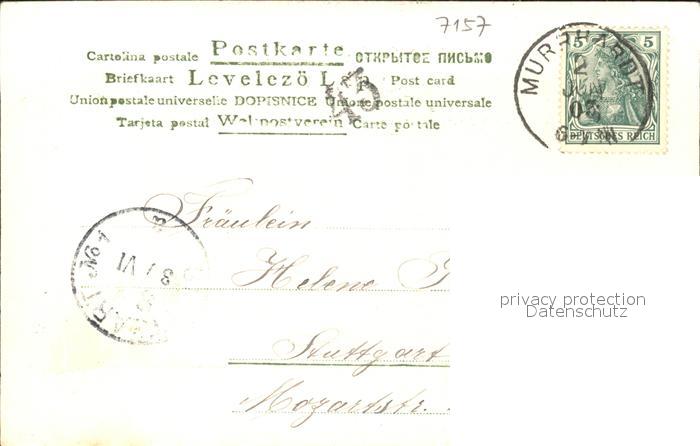 7157
Cartolina postale Postkarte ОТКРЫТОЕ ПИСЬМО
Briefkaart Levelező Post card
Unionpostale universelle DOPISNICE Unione postale universale
Tarjeta postal Weltpostverein Carte postale
MURRHARDT
5 5
DEUTSCHES REICH
Fräulein
Helene
Stuttgart
Mozartstr.
No 1
3 / VI
privacy protection
Datenschutz